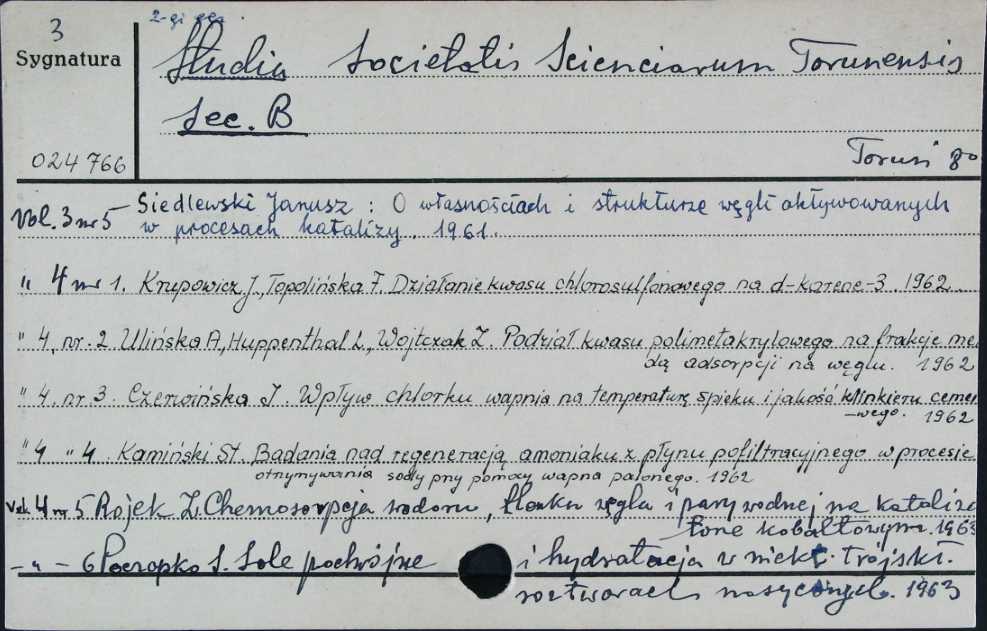 3
2-gi egz.
Sygnatura
Studia Societatis Scienciarum Torunensis
Sec. B
024766
Toruń 8°
Vol. 3 nr 5 Siedlewski Janusz : O własnościach i strukturze węgli aktywowanych
w procesach katalizy. 1961.
" 4 nr 1. Krupowicz J., Topolińska F. Działanie kwasu chlorosulfonowego na d-karene-3. 1962.
" 4, nr. 2 Ulińska A, Huppenthal L., Wojtczak Z. Podział kwasu polimetakrylowego na frakcje meto
dą adsorpcji na węglu. 1962
" 4. nr. 3. Czerwińska J. Wpływ chlorku wapnia na temperaturę spieku i jakość klinkieru cemen
-wego. 1962
" 4 " 4. Kamiński St. Badania nad regeneracją amoniaku z płynu pofiltracyjnego w procesie
otrzymywania sody przy pomocy wapna palonego. 1962
Vol. 4 nr 5 Rojek Z. Chemosorpcja wodoru, tlenku węgla i pary wodnej na kataliza
torze kobaltowym. 1963
- " - 6 Pocropko S. Sole podwójne i hydratacja w niekt. trójskł.
roztworach nasyconych. 1963